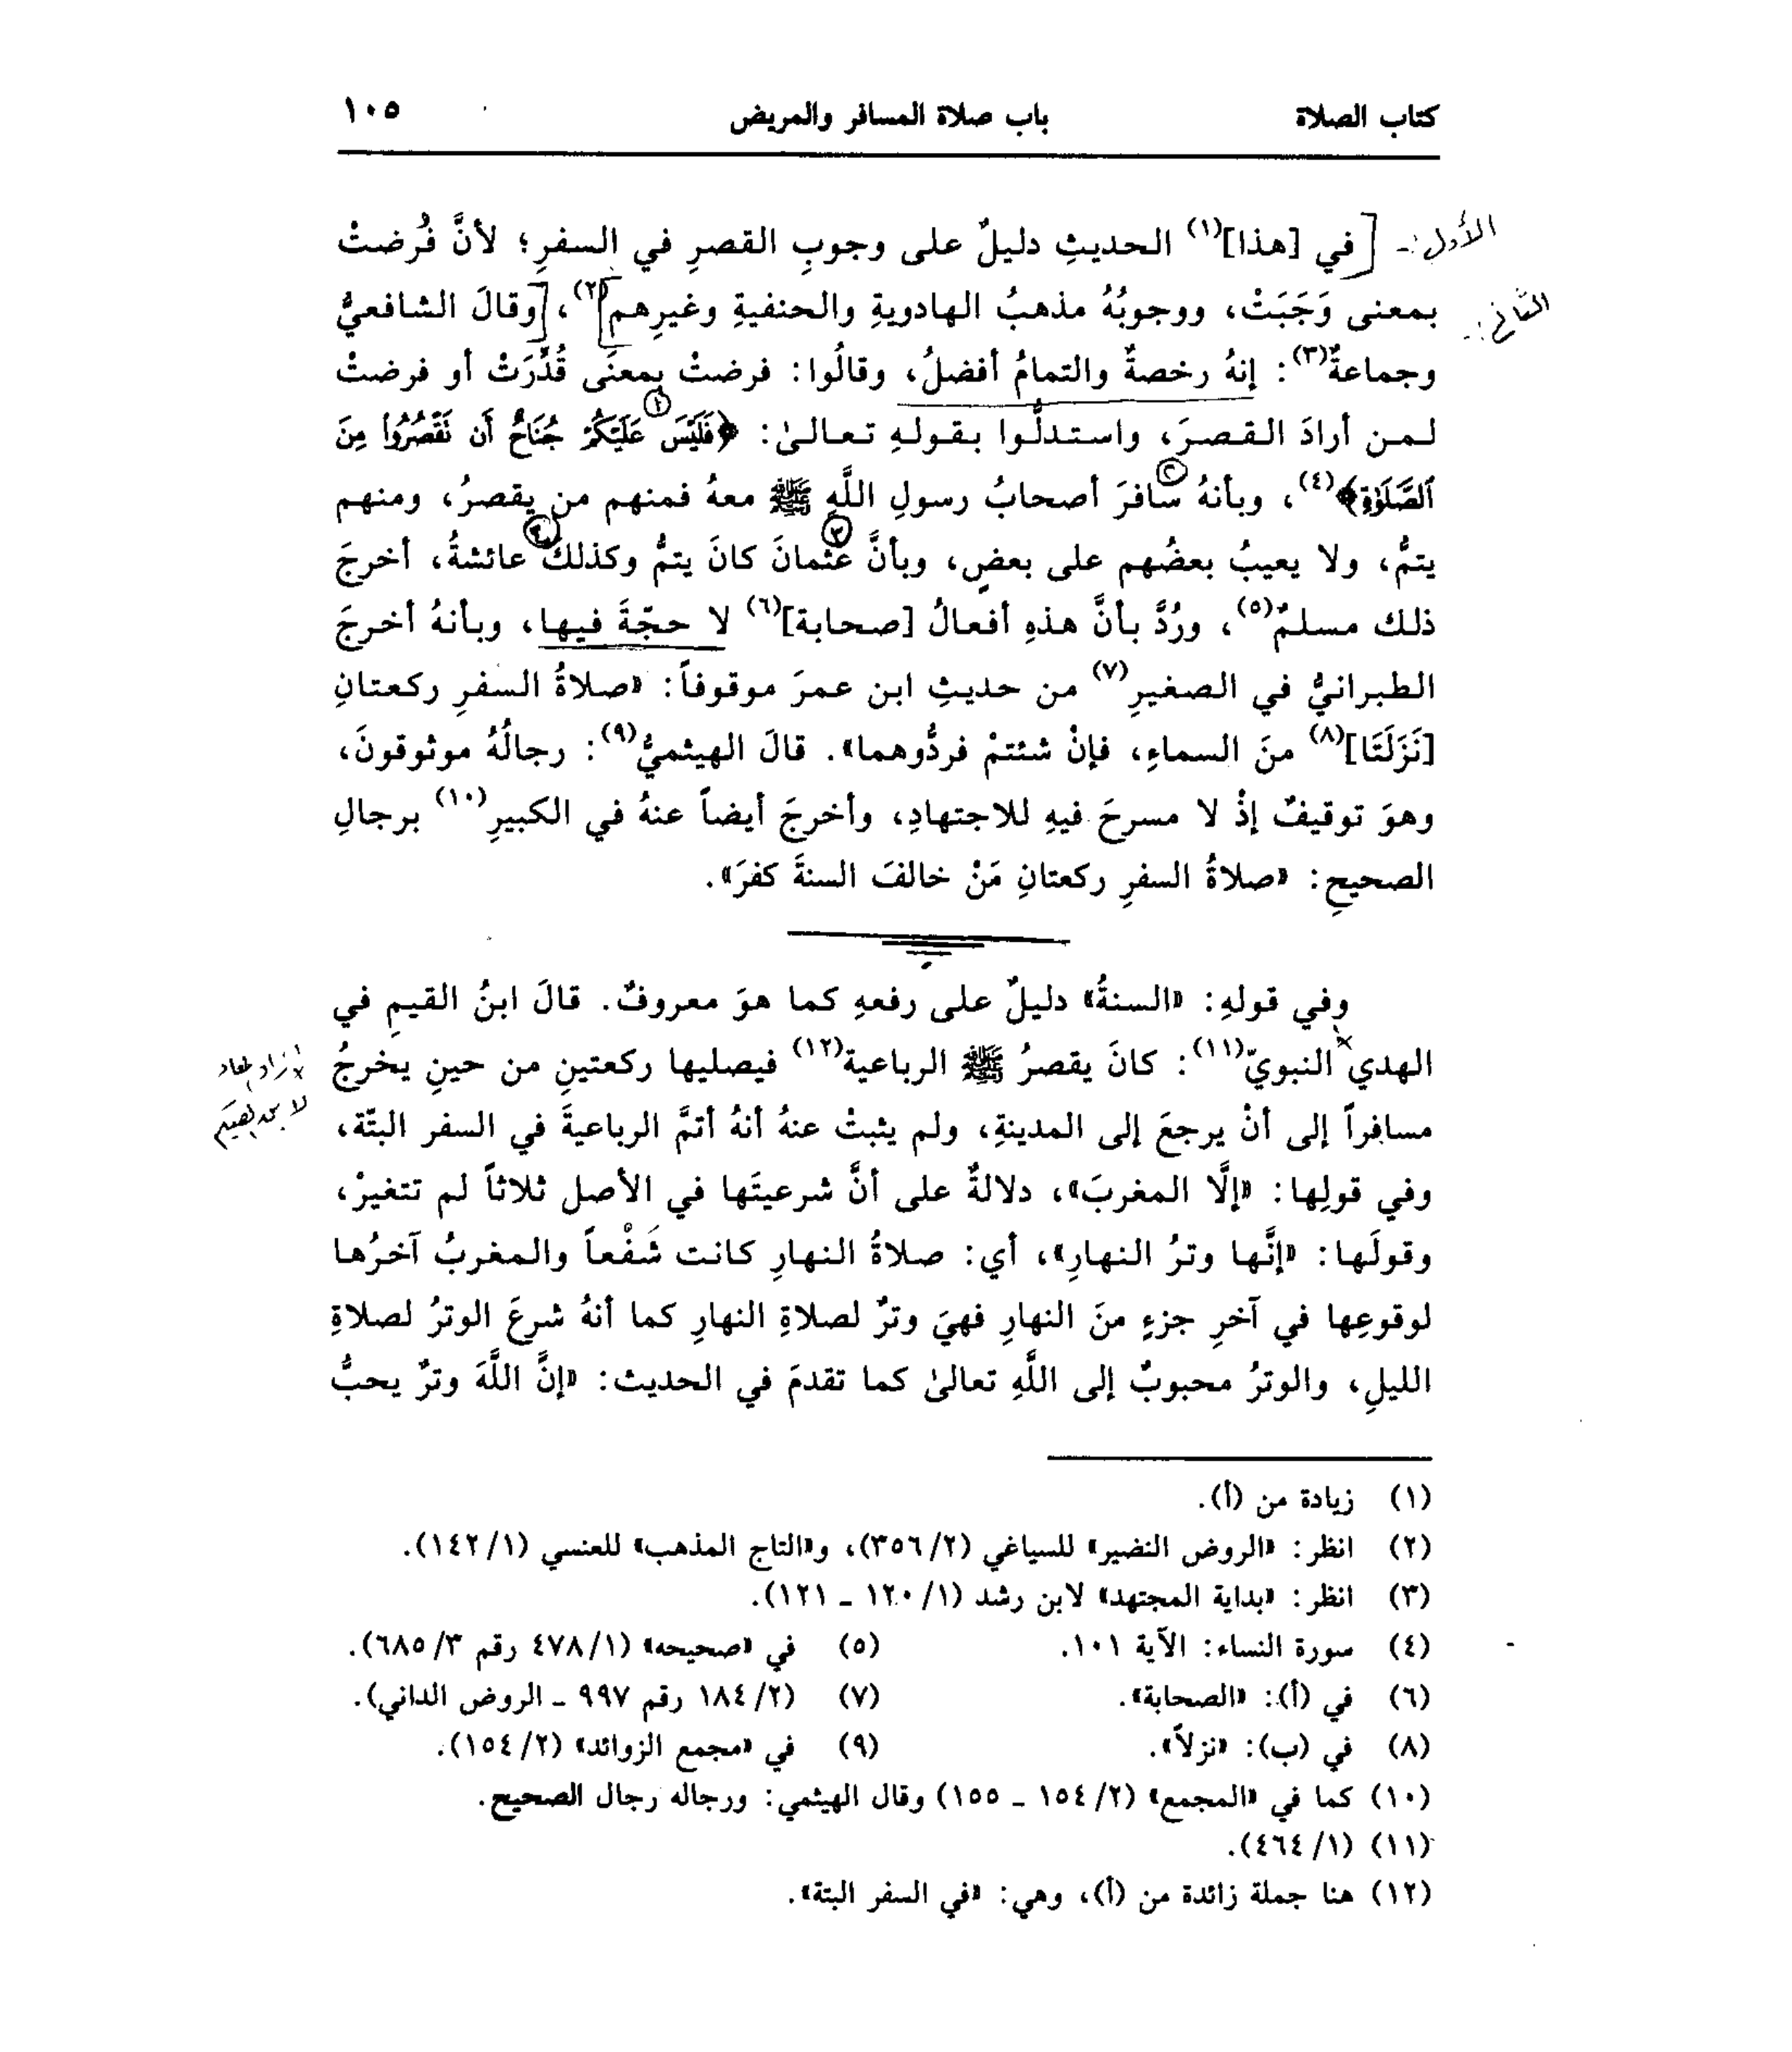 كتاب الصلاة باب صلاة المسافر والمريض ١٠٥
الأول:- [في [هذا](١) الحديثِ دليلٌ على وجوبِ القصرِ في السفرِ؛ لأنَّ فُرضتْ
الثاني:- بمعنى وَجَبَتْ، ووجوبُهُ مذهبُ الهادويةِ والحنفيةِ وغيرِهم](٢)، [وقالَ الشافعيُّ
وجماعةٌ(٣): إنهُ رخصةٌ والتمامُ أفضلُ، وقالُوا: فرضتْ بمعنَى قُدِّرَتْ أو فرضتْ
١
لمن أرادَ القصرَ، واستدلُّوا بقولهِ تعالىٰ: ﴿فَلَيْسَ عَلَيْكُمْ جُنَاحٌ أَن نَقْصُرُوا۟ مِنَ
٢
ٱلصَّلَوٰةِ﴾(٤)، وبأنهُ سافرَ أصحابُ رسولِ اللَّهِ ﷺ معهُ فمنهم من يقصرُ، ومنهم
٣ ٤
يتمُّ، ولا يعيبُ بعضُهم على بعضٍ، وبأنَّ عثمانَ كانَ يتمُّ وكذلكَ عائشةُ، أخرجَ
ذلك مسلمٌ(٥)، ورُدَّ بأنَّ هذهِ أفعالُ [صحابة](٦) لا حجّةَ فيها، وبأنهُ أخرجَ
الطبرانيُّ في الصغيرِ(٧) من حديثِ ابن عمرَ موقوفاً: «صلاةُ السفرِ ركعتانِ
[نَزَلَتَا](٨) منَ السماءِ، فإنْ شئتمْ فردُّوهما». قالَ الهيثميُّ(٩): رجالُهُ موثوقونَ،
وهوَ توقيفٌ إذْ لا مسرحَ فيهِ للاجتهادِ، وأخرجَ أيضاً عنهُ في الكبيرِ(١٠) برجالِ
الصحيحِ: «صلاةُ السفرِ ركعتانِ مَنْ خالفَ السنةَ كفرَ».
وفي قولهِ: «السنةُ» دليلٌ على رفعهِ كما هوَ معروفٌ. قالَ ابنُ القيمِ في
الهدي النبويّ(١١): كانَ يقصرُ ﷺ الرباعية(١٢) فيصليها ركعتينِ من حينِ يخرجُ
زاد المعاد
مسافراً إلى أنْ يرجعَ إلى المدينةِ، ولم يثبتْ عنهُ أنهُ أتمَّ الرباعيةَ في السفر البتّة،
وفي قولِها: «إلَّا المغربَ»، دلالةٌ على أنَّ شرعيتَها في الأصل ثلاثاً لم تتغيرْ،
وقولَها: «إنَّها وترُ النهارِ»، أي: صلاةُ النهارِ كانت شَفْعاً والمغربُ آخرُها
لوقوعِها في آخرِ جزءٍ منَ النهارِ فهيَ وترٌ لصلاةِ النهارِ كما أنهُ شرعَ الوترُ لصلاةِ
الليلِ، والوترُ محبوبٌ إلى اللَّهِ تعالىٰ كما تقدمَ في الحديث: «إنَّ اللَّهَ وترٌ يحبُّ
(١) زيادة من (أ).
(٢) انظر: «الروض النضير» للسياغي (٣٥٦/٢)، و«التاج المذهب» للعنسي (١٤٢/١).
(٣) انظر: «بداية المجتهد» لابن رشد (١٢٠/١ - ١٢١).
(٤) سورة النساء: الآية ١٠١. (٥) في «صحيحه» (٤٧٨/١ رقم ٦٨٥/٣).
(٦) في (أ): «الصحابة». (٧) (١٨٤/٢ رقم ٩٩٧ - الروض الداني).
(٨) في (ب): «نزلاً». (٩) في «مجمع الزوائد» (١٥٤/٢).
(١٠) كما في «المجمع» (١٥٤/٢ - ١٥٥) وقال الهيثمي: ورجاله رجال الصحيح.
(١١) (٤٦٤/١).
(١٢) هنا جملة زائدة من (أ)، وهي: «في السفر البتة».